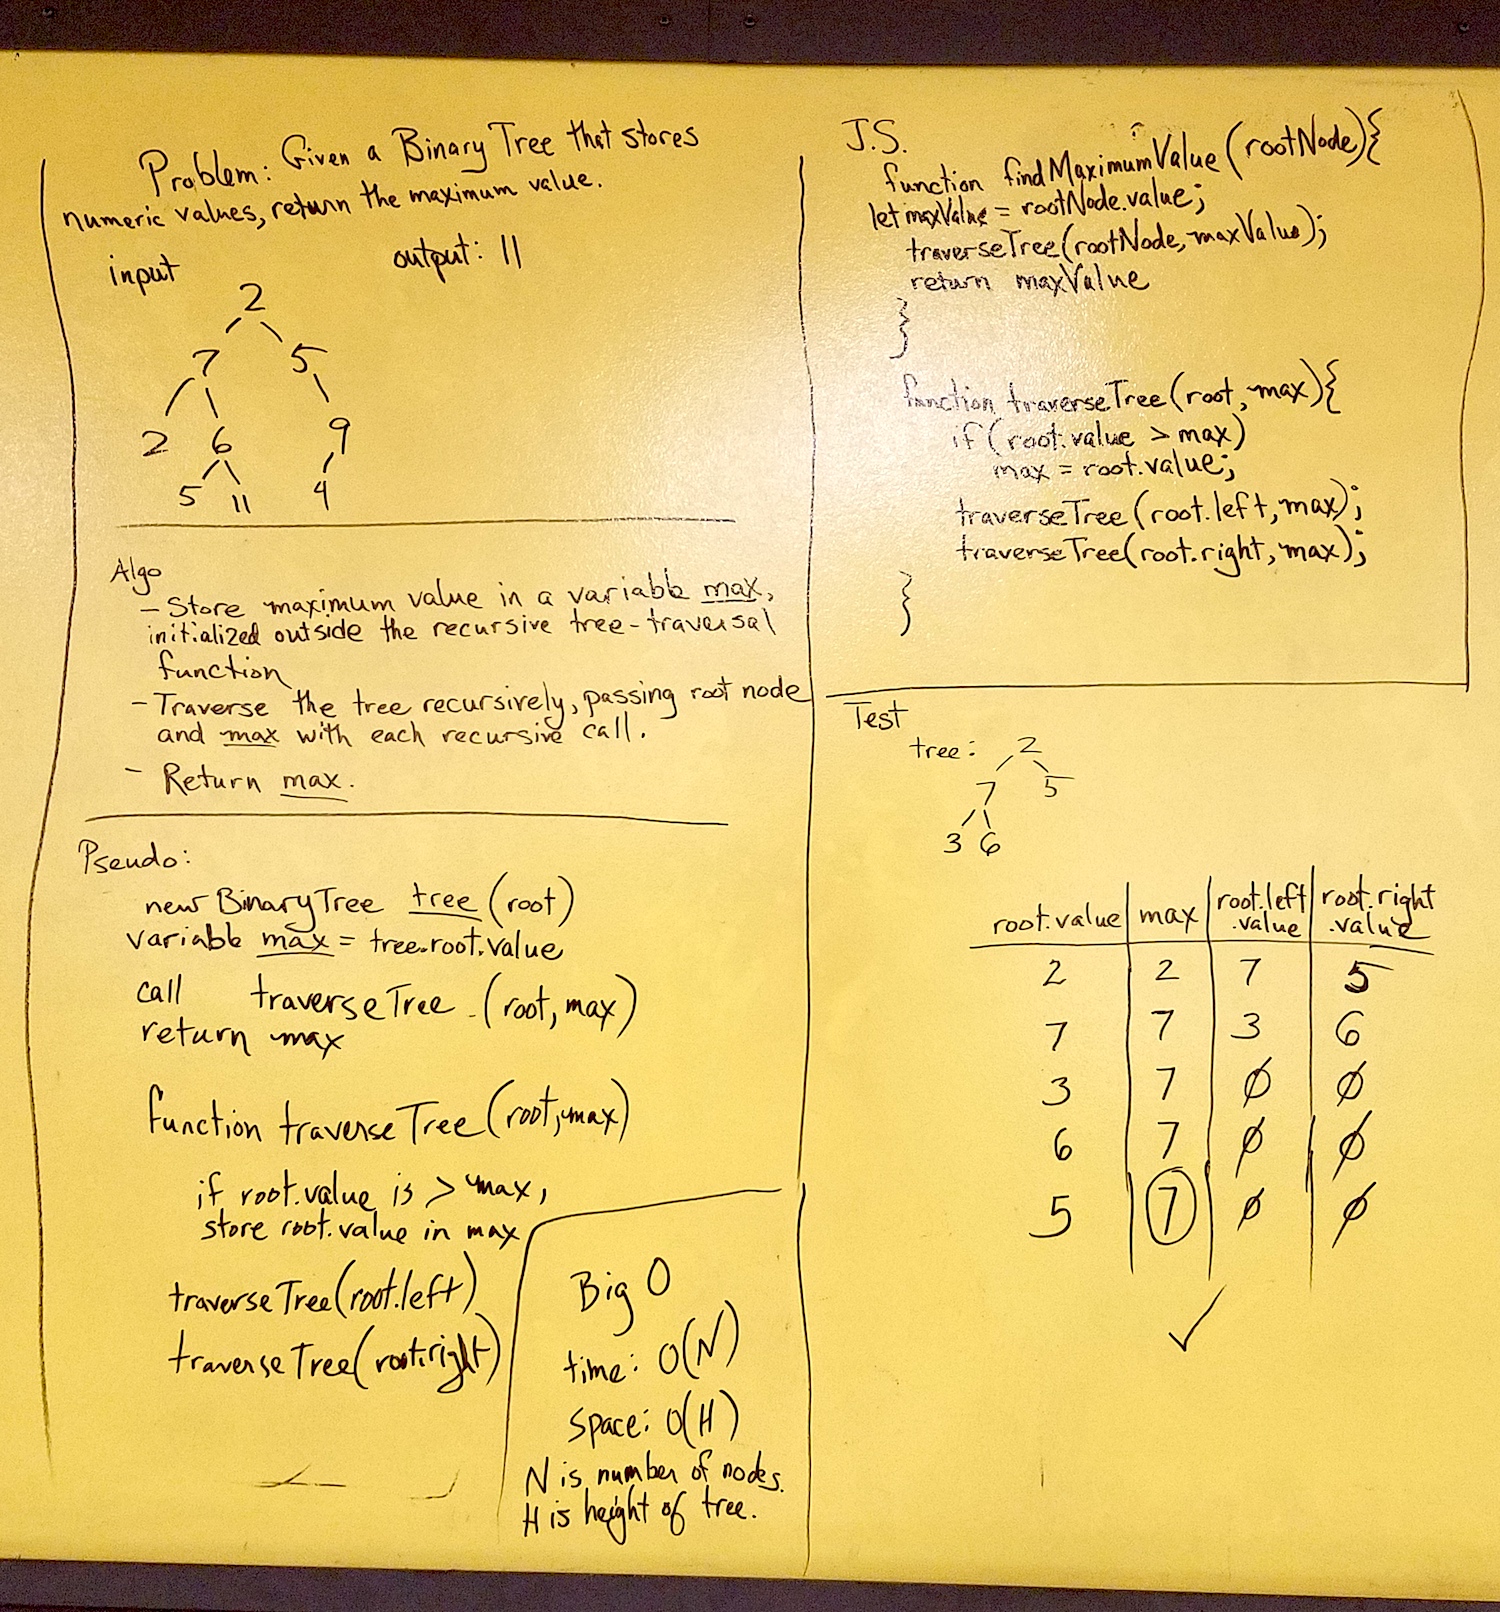 Problem: Given a Binary Tree that stores
numeric values, return the maximum value.
input
output: 11
2
7 5
2 6 9
5 11 4
Algo
- Store maximum value in a variable max,
initialized outside the recursive tree-traversal
function
- Traverse the tree recursively, passing root node
and max with each recursive call.
- Return max.
Pseudo:
new BinaryTree tree (root)
variable max = tree.root.value
call traverseTree (root, max)
return max
function traverseTree (root, max)
if root.value is > max,
store root.value in max
traverseTree(root.left)
traverseTree(root.right)
Big O
time: O(N)
space: O(H)
N is number of nodes.
H is height of tree.
J.S.
function findMaximumValue (rootNode){
let maxValue = rootNode.value;
traverseTree(rootNode, maxValue);
return maxValue
}
function traverseTree (root, max){
if (root.value > max)
max = root.value;
traverseTree (root.left, max);
traverseTree(root.right, max);
}
Test
tree: 2
7 5
3 6
root.value | max | root.left.value | root.right.value
2 2 7 5
7 7 3 6
3 7 ∅ ∅
6 7 ∅ ∅
5 7 ∅ ∅
✓